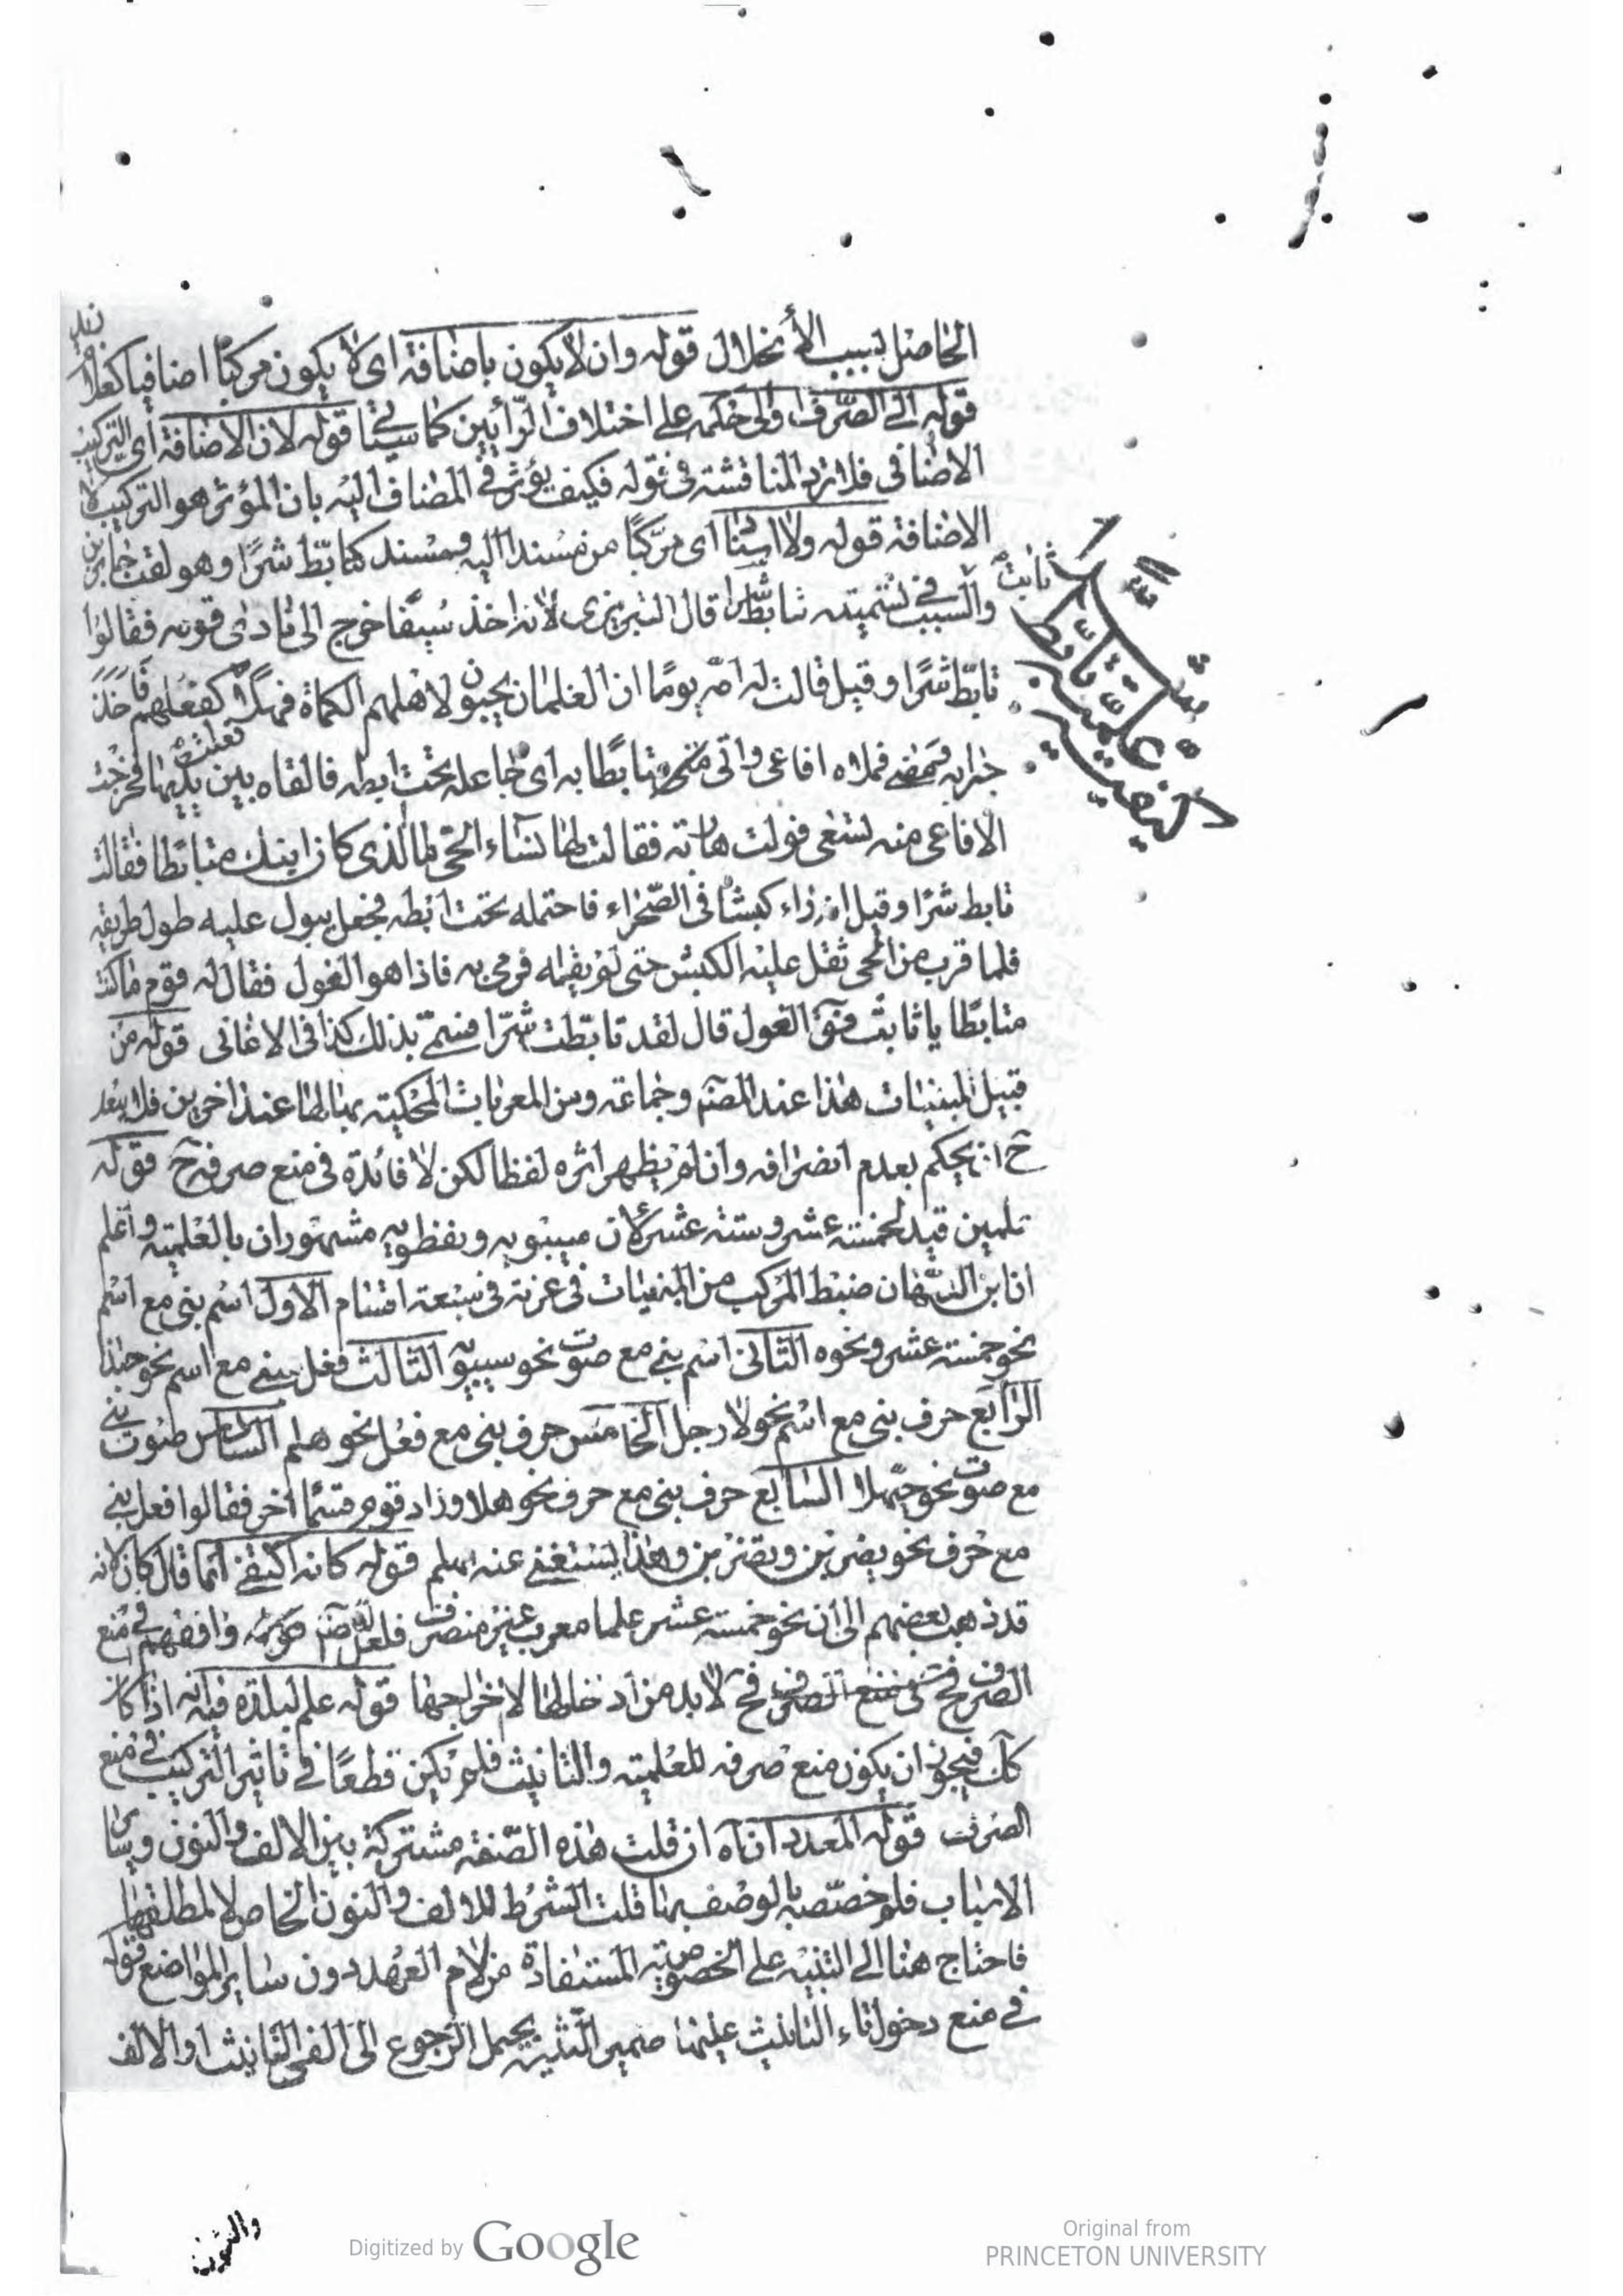 الحاصل بسبب الانحلال قوله وان لا يكون باضافة اى لا يكون مركبا اضافيا كغلام زيد
قوله الى الصرف او الى حكمه على اختلاف الرأيين كما سيجئ قوله لان الاضافة اى التركيب
الاضافى فلا ترد المناقشة فى قوله فكيف يؤثر فى المضاف اليه بان المؤثر هو التركيب لا
الاضافة قوله ولا اسناد اى مركبا من مسند اليه ومسند كتابّط شرًا وهو لقب جابر بن
ثابت والسبب فى تسميته تابط شرا قال التبريزى لانه اخذ سيفا خرج الى نادى قومه فقالوا
تابّط شرًا وقيل قالت له امه يوما ان الغلمان يجبون لاهلهم الكماة فهلا كفعلهم فاخذ
جرابه فملاه افاعى واتى متابطا به اى جاعله تحت ابطه فالقاه بين يديها فخرجت
الافاعى منه تسعى فولت هاربة فقالت لها نساء الحى ما الذى كان ابنك متابطا فقالت
تابط شرًا وقيل انه راى كبشا فى الصحراء فاحتمله تحت ابطه فجعل يبول عليه طول طريقه
فلما قرب من الحى ثقل عليه الكبش حتى لم يقله فرمى به فاذا هو الغول فقال له قومه ما كنت
متابطا يا ثابت قال الغول قال لقد تابطت شرّا فسمّى بذلك كذا فى الاغانى قوله من
قبيل المبنيات هذا عند المصنف وجماعة ومن المعربات المحكية عند اخرين فلا يبعد
ح ان يحكم بعدم انصرافه وان لم يظهر اثره لفظا لكن لا فائدة فى منع صرفه ح قوله
علمين قيد لخمسة عشر وستة عشر لان سيبويه ونفطويه مشهوران بالعلمية واعلم
ان ابن الدهان ضبط المركب من المبنيات فى غرته فى سبعة اقسام الاول اسم بنى مع اسم
نحو خمسة عشر ونحوه الثانى اسم بنى مع صوت نحو سيبويه الثالث فعل بنى مع اسم نحو حبذا
الرابع حرف بنى مع اسم نحو لا رجل الخامس حرف بنى مع فعل نحو هلم السادس صوت بنى
مع صوت نحو حيهلا السابع حرف بنى مع حرف نحو هلا وزاد قوم قسما اخر فقالوا فعل بنى
مع حرف نحو يضربن وتضربن وهذا يستغنى عنه بهلم قوله كانه اكتفى انما قال كان لانه
قد ذهب بعضهم الى ان نحو خمسة عشر علما معرب غير منصرف فلعل وافقهم فى منع
الصرف فح لا بد من ادخالها لا اخراجها قوله علم لبلدة فانه اذا كان
كك فيجوز ان يكون منع صرفه للعلمية والتانيث فلم يكن قطعًا فى تاثير التركيب فى منع
الصرف قوله المعدودتان اه ان قلت هذه الصفة مشتركة بين الالف والنون وسائر
الاسباب فلم خصّصه بالوصف بها قلت الشرط للالف والنون الخاص لا لمطلقها
فاحتاج هنا الى التنبيه على الخصوصية المستفادة من لام العهد دون سائر المواضع قوله
فى منع دخول تاء التانيث عليهما ضمير التثنية يحتمل الرجوع الى الفى التانيث او الالف
والنون
Digitized by Google
Original from
PRINCETON UNIVERSITY